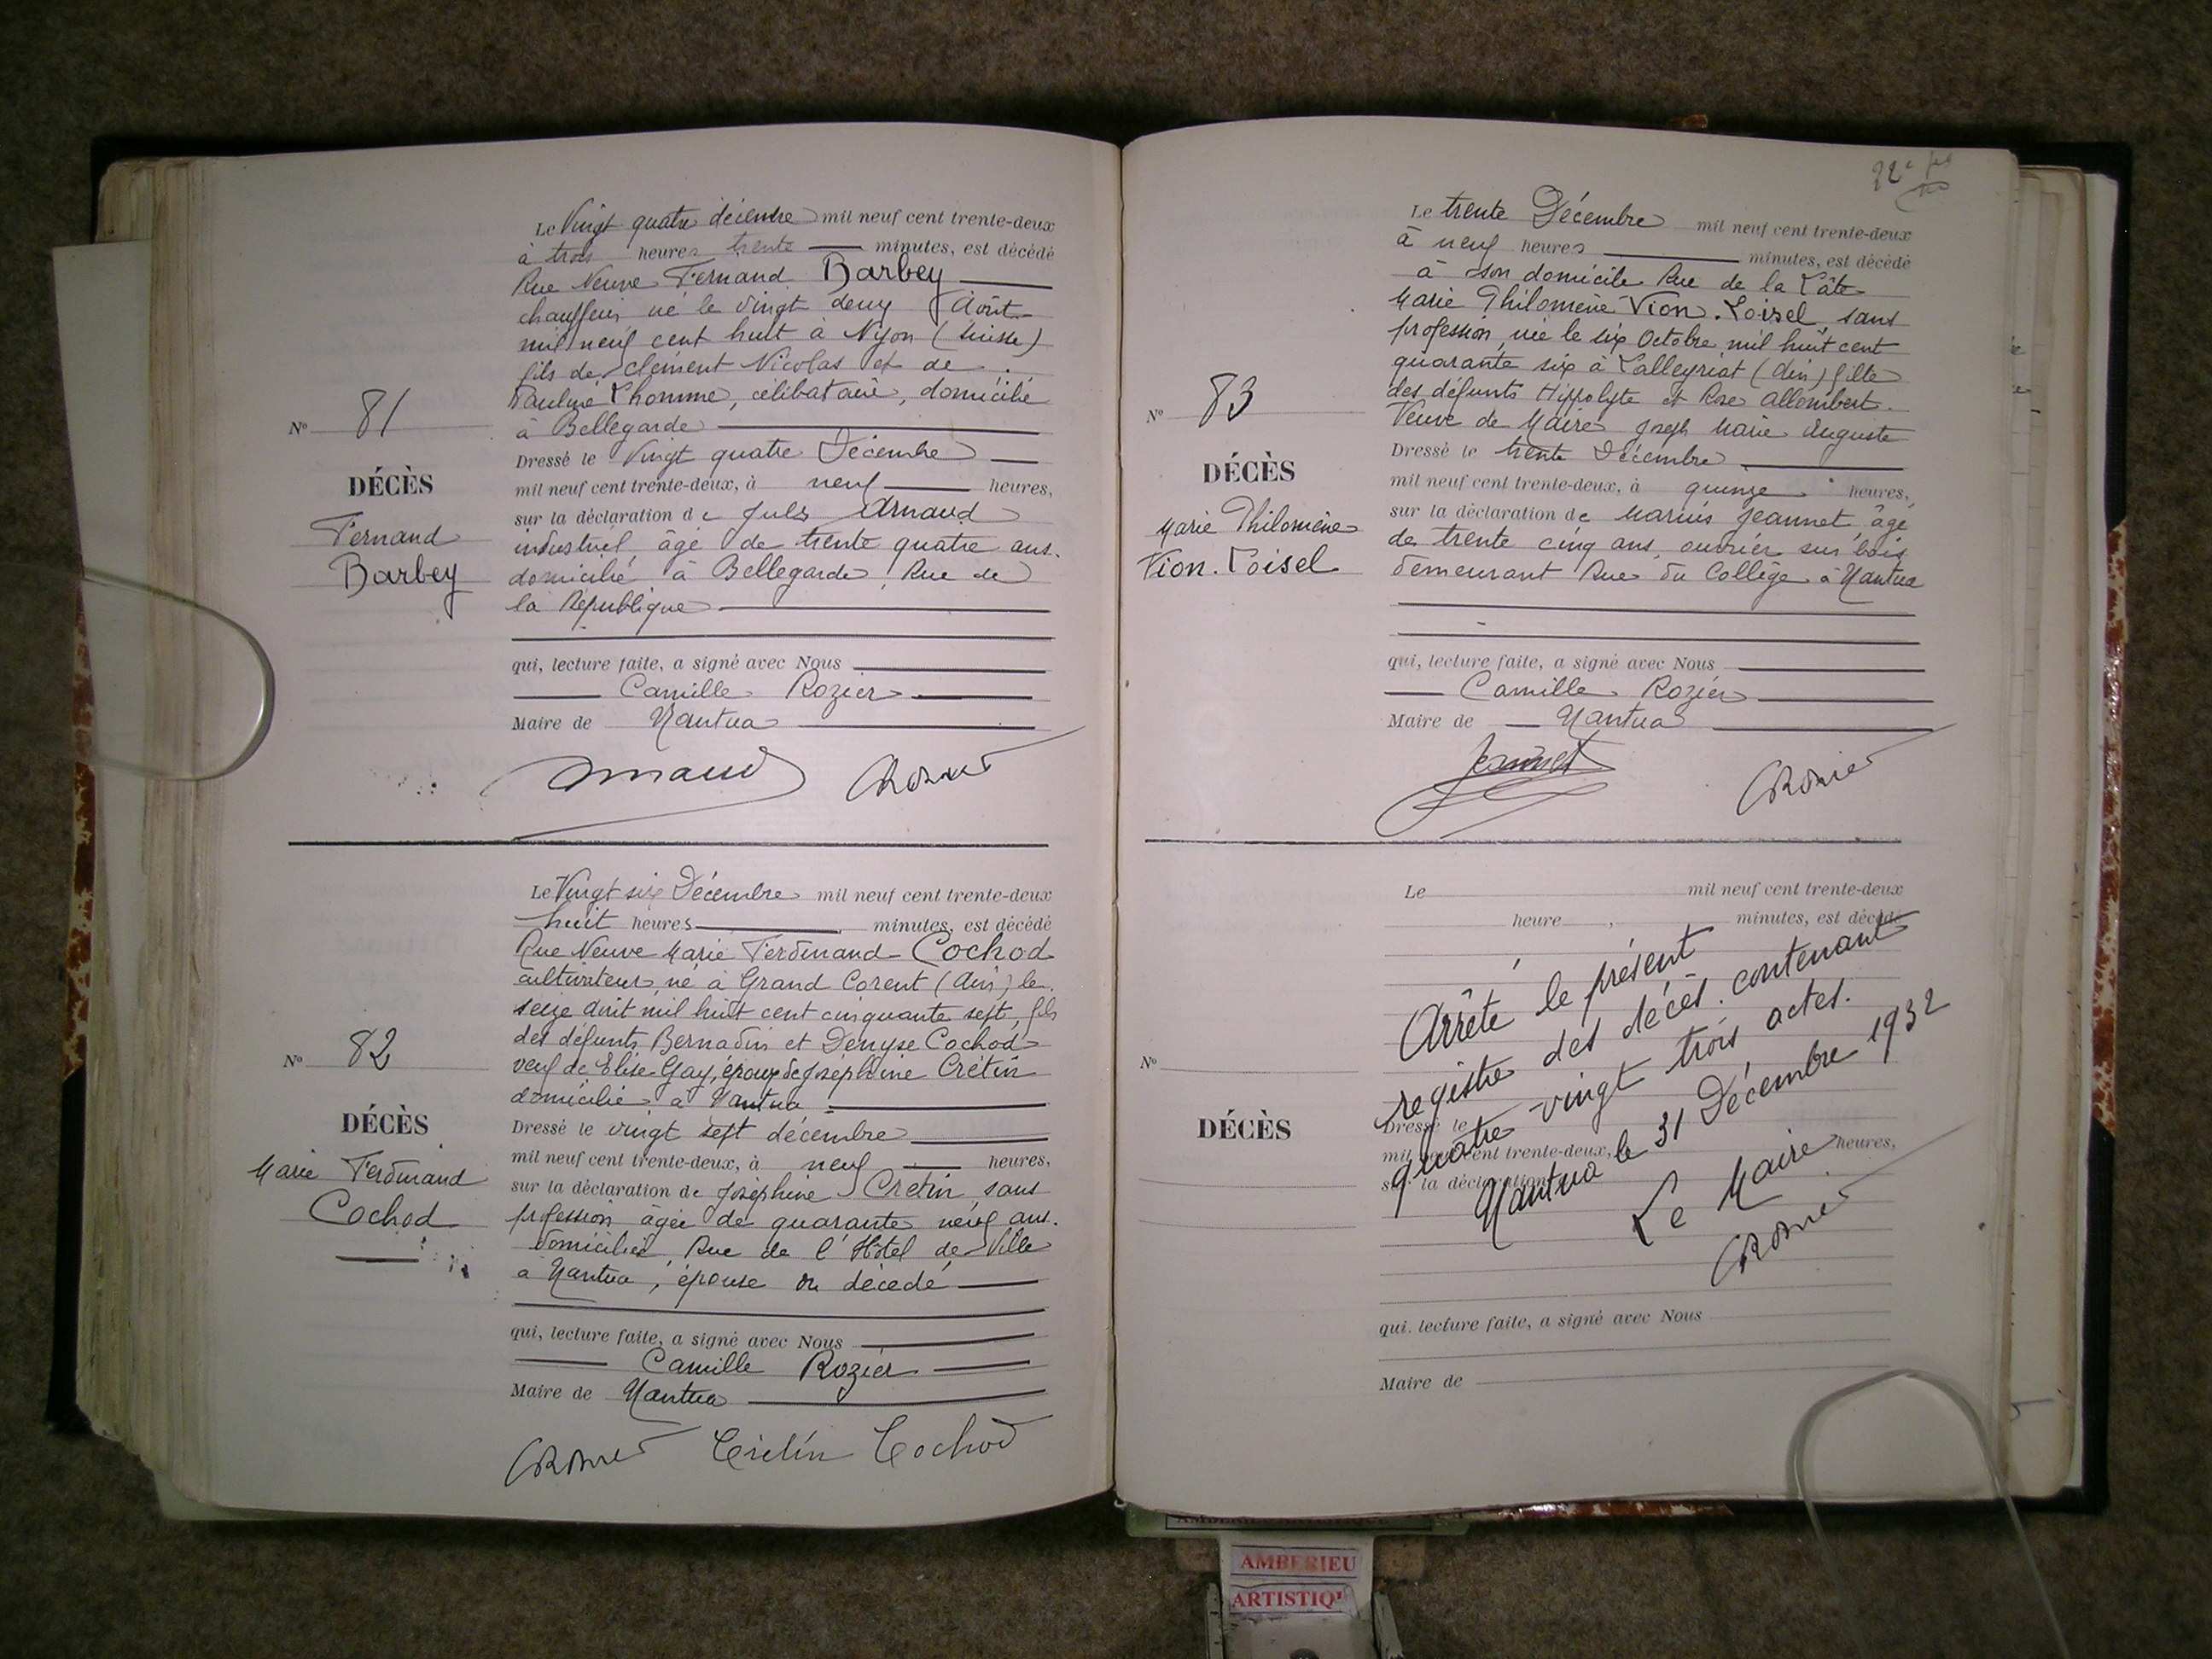 Le Vingt quatre décembre mil neuf cent trente-deux
à trois heures trente minutes, est décédé
Rue Neuve Fernand Barbey
chauffeur né le vingt deux Août
mil neuf cent huit à Nyon (Suisse)
fils de Clément Nicolas et de
Pauline Lhomme, célibataire, domicilié
à Bellegarde
Nº 81
DÉCÈS
Fernand
Barbey
Dressé le Vingt quatre Décembre
mil neuf cent trente-deux, à neuf heures,
sur la déclaration de Jules Arnaud
industriel, âgé de trente quatre ans.
domicilié à Bellegarde, Rue de
la République
qui, lecture faite, a signé avec Nous
Camille Rozier
Maire de Nantua
Arnaud CRozier
Le Vingt six Décembre mil neuf cent trente-deux
huit heures minutes, est décédé
Rue Neuve Marie Ferdinand Cochod
cultivateur, né à Grand Corent (Ain) le
seize août mil huit cent cinquante sept, fils
des défunts Bernadin et Denyse Cochod
veuf de Elise Gay, époux de Joséphine Crétin
domicilié à Nantua
Nº 82
DÉCÈS
Marie Ferdinand
Cochod
Dressé le vingt sept décembre
mil neuf cent trente-deux, à neuf heures,
sur la déclaration de Joséphine Cretin sans
profession âgée de quarante neuf ans.
domiciliée Rue de l'Hôtel de Ville
à Nantua, épouse du décédé
qui, lecture faite, a signé avec Nous
Camille Rozier
Maire de Nantua
CRozier Crétin Cochod
Le trente Décembre mil neuf cent trente-deux
à neuf heures minutes, est décédé
à son domicile Rue de la Côte
Marie Philomène Vion-Loisel, sans
profession, née le six Octobre mil huit cent
quarante six à Lalleyriat (Ain) fille
des défunts Hippolyte et Rose Allombert.
Veuve de Maire Joseph Marie Auguste
Nº 83
DÉCÈS
Marie Philomène
Vion-Loisel
Dressé le trente Décembre
mil neuf cent trente-deux, à quinze heures,
sur la déclaration de Marius Jeannet, âgé
de trente cinq ans, ouvrier sur bois
demeurant Rue du Collège à Nantua
qui, lecture faite, a signé avec Nous
Camille Rozier
Maire de Nantua
Jeannet CRozier
Le mil neuf cent trente-deux
heure minutes, est décédé
Nº
DÉCÈS
Arrêté le présent
registre des décès contenant
quatre-vingt trois actes.
Nantua le 31 Décembre 1932
Le Maire
CRozier
Dressé le
mil neuf cent trente-deux, heures,
sur la déclaration
qui, lecture faite, a signé avec Nous
Maire de
AMBERIEU
ARTISTIQ